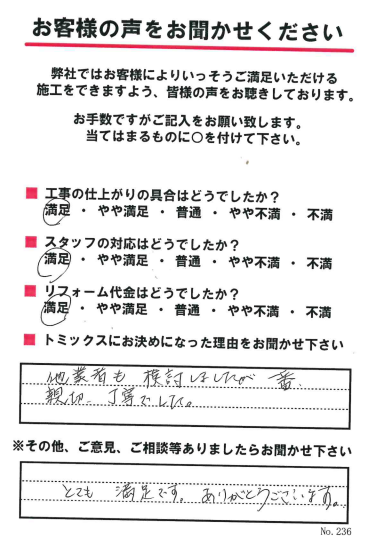 お客様の声をお聞かせください
弊社ではお客様によりいっそうご満足いただける
施工をできますよう、皆様の声をお聴きしております。
お手数ですがご記入をお願い致します。
当てはまるものに○を付けて下さい。
■ 工事の仕上がりの具合はどうでしたか？
満足 ・ やや満足 ・ 普通 ・ やや不満 ・ 不満
■ スタッフの対応はどうでしたか？
満足 ・ やや満足 ・ 普通 ・ やや不満 ・ 不満
■ リフォーム代金はどうでしたか？
満足 ・ やや満足 ・ 普通 ・ やや不満 ・ 不満
■ トミックスにお決めになった理由をお聞かせ下さい
他業者も 検討しましたが 一番、
親切、丁寧でした。
※その他、ご意見、ご相談等ありましたらお聞かせ下さい
とても 満足です。ありがとうございます。
No. 236